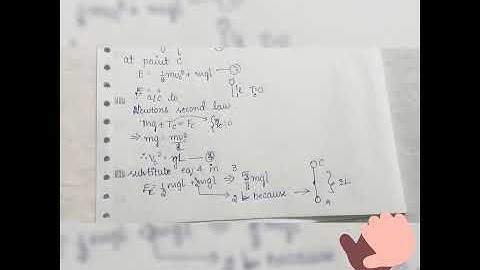 at point C
E = ½mv² + mgl ③
Tc=0
a/c to
Newtons second law
mg + Tc = Fc {Tc=0
⇒ mg = mvc²/l
∴ Vc² = gl ④
substitute eq 4 in 3
E = ½mgl + 2mgl ⇒ 5/2 mgl
2 because
C
2L
A